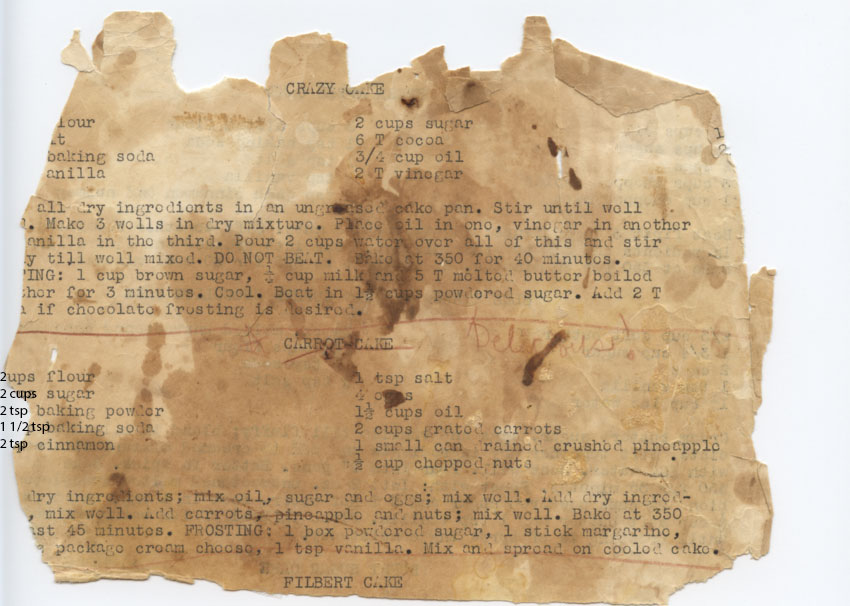 CRAZY CAKE
lour 2 cups sugar
t 6 T cocoa
baking soda 3/4 cup oil
anilla 2 T vinegar
all dry ingredients in an ungreased cake pan. Stir until well
. Make 3 wells in dry mixture. Place oil in one, vinegar in another
anilla in the third. Pour 2 cups water over all of this and stir
y till well mixed. DO NOT BEAT. Bake at 350 for 40 minutes.
ING: 1 cup brown sugar, cup milk and 5 T melted butter boiled
her for 3 minutes. Cool. Beat in 1½ cups powdered sugar. Add 2 T
if chocolate frosting is desired.
CARROT CAKE Delicious!
2 ups flour 1 tsp salt
2 cups sugar 4
2 tsp baking powder 1½ cups oil
1 1/2 tsp baking soda 2 cups grated carrots
2 tsp cinnamon 1 small can drained crushed pineapple
½ cup chopped nuts
dry ingredients; mix oil, sugar and eggs; mix well. Add dry ingred-
, mix well. Add carrots, pineapple and nuts; mix well. Bake at 350
st 45 minutes. FROSTING: 1 box powdered sugar, 1 stick margarine,
package cream cheese, 1 tsp vanilla. Mix and spread on cooled cake.
FILBERT CAKE